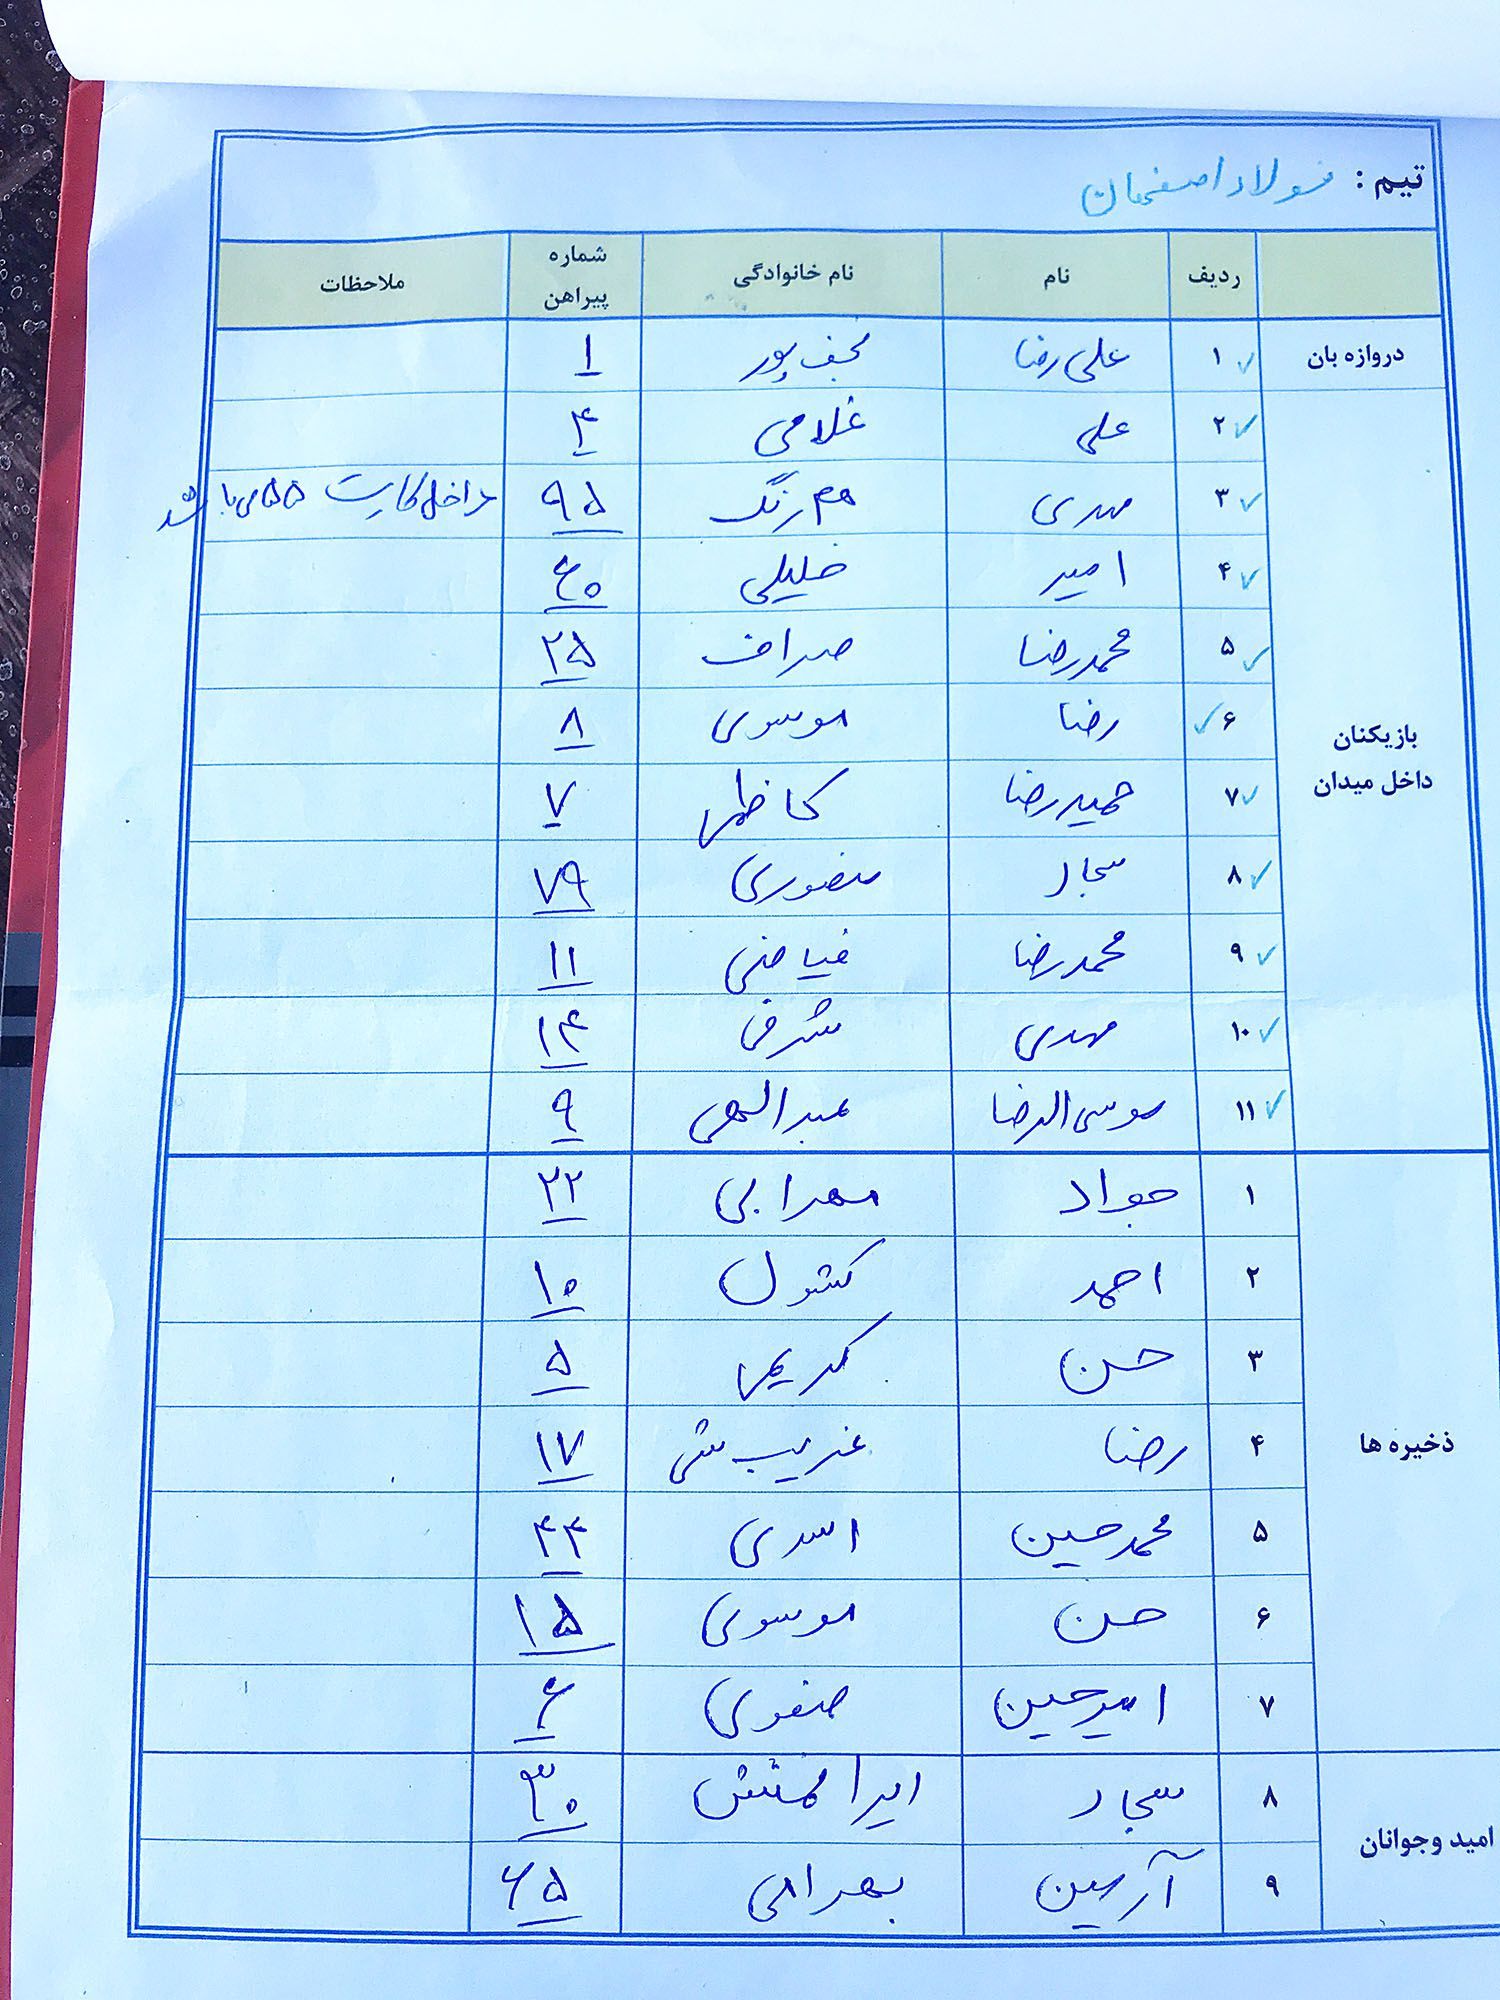 تیم : فولاد اصفهان
ردیف نام نام خانوادگی شماره پیراهن ملاحظات
دروازه بان
۱ علی رضا نجف پور ۱
بازیکنان داخل میدان
۲ علی غلامی ۴
۳ مهدی هم رنگ ۹۵ داخل کارت ۵۵ می باشد
۴ امیر خلیلی ۶۰
۵ محمدرضا صراف ۲۵
۶ رضا موسوی ۸
۷ حمیدرضا کاظمی ۷
۸ سجاد منصوری ۷۹
۹ محمدرضا فیاضی ۱۱
۱۰ مهدی شرفی ۱۴
۱۱ موسی الرضا عبدالهی ۹
ذخیره ها
۱ جواد سهرابی ۲۲
۲ احمد کشول ۱۰
۳ حسن کریمی ۵
۴ رضا غریب شی ۱۷
۵ محمدحسین اسدی ۴۴
۶ حسن موسوی ۱۵
۷ امیرحسین صفوی ۶
امید وجوانان
۸ سجاد ۳۰
۹ آرسین بهرامی ۶۵